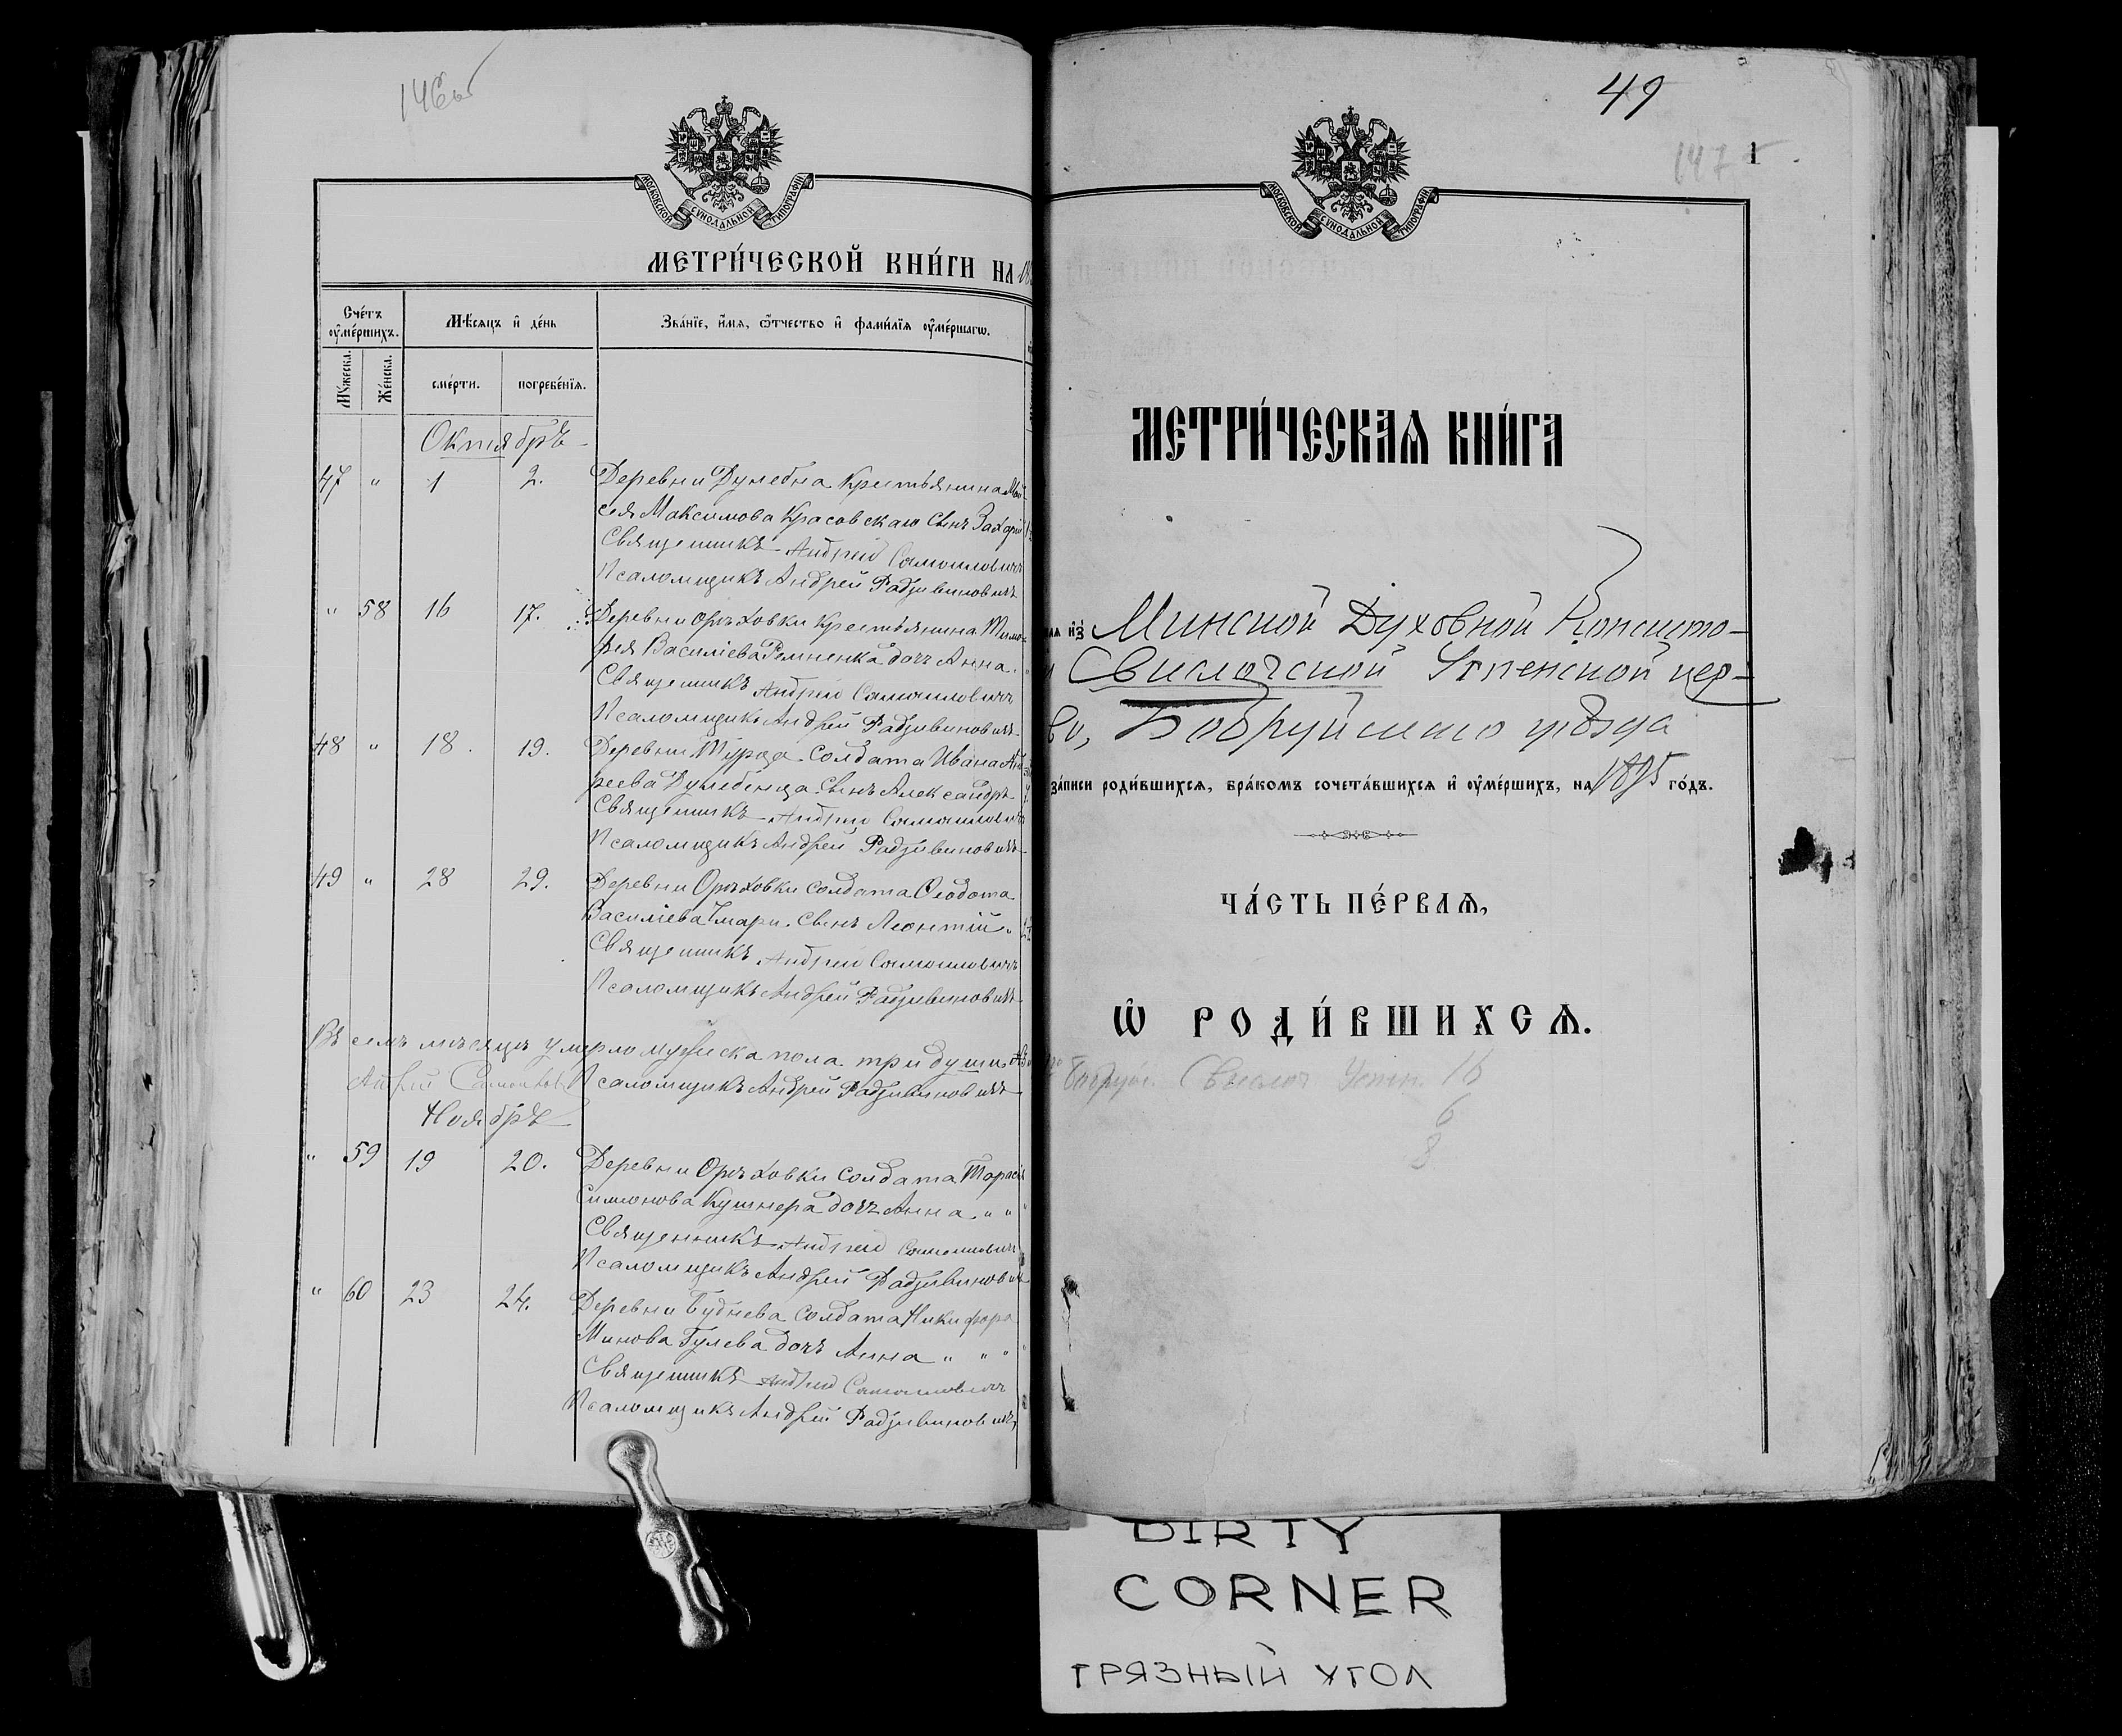 146об
МОСКОВСКОЙ СѴНОДАЛЬНОЙ ТИПОГРАФІИ
МЕТРИ́ЧЕСКОЙ КНИ́ГИ НА 18
Сче́тъ оу҆ме́ршихъ.
Мѣ́сяцъ и҆ де́нь
Зва́нїе, и҆́мя, ѻ҆́тчество и҆ фами́лїя оу҆ме́ршагѡ.
Мꙋ́жеска.
Же́нска.
сме́рти.
погребе́нїя.
Октябрь
47 " 1 2. Деревни Дулебна Крестьянина Мои
сея Максимова Красовскаго сынъ Захарій
Священникъ Андрей Самойловичъ
Псаломщикъ Андрей Радзивиновичъ
" 58 16 17. Деревни Орѣховки Крестьянина Тимо
фея Василіева дочь Анна.
Священникъ Андрей Самойловичъ
Псаломщикъ Андрей Радзивиновичъ
48 " 18. 19. Деревни Турца Солдата Ивана Анд
реева Дулебенца сынъ Александръ
Священникъ Андрей Самойловичъ
Псаломщикъ Андрей Радзивиновичъ
49 " 28 29. Деревни Орѣховки солдата Ѳеодота
Василіева сынъ Леонтій.
Священникъ Андрей Самойловичъ
Псаломщикъ Андрей Радзивиновичъ
Въ семъ мѣсяцѣ умерло мужеска пола три души,
Псаломщикъ Андрей Радзивиновичъ
Ноябрь
" 59 19 20. Деревни Орѣховки солдата Тараса
Симонова Кушнера дочь Анна. " "
Священникъ Андрей Самойловичъ
Псаломщикъ Андрей Радзивиновичъ
" 60 23 24. Деревни Буднева солдата Никифора
Минова Гулева дочь Анна " " "
Священникъ Андрей Самойловичъ
Псаломщикъ Андрей Радзивиновичъ
49
147
1
МОСКОВСКОЙ СѴНОДАЛЬНОЙ ТИПОГРАФІИ
МЕТРИ́ЧЕСКАѦ КНИ́ГА
и҆з̾ Минской Духовной Консисто-
Свислочской Успенской цер-
Бобруйскаго уѣзда
за́писи роди́вшихсѧ, бра́комъ сочета́вшихсѧ и҆ оу҆ме́ршихъ, на 1895 го́дъ.
ЧА́СТЬ ПЕ́РВАѦ,
Ѡ҆ РОДИ́ВШИХСѦ.
Бобруйс. Свислоч Успен. 16
6
8
DIRTY
CORNER
ГРЯЗНЫЙ УГОЛ